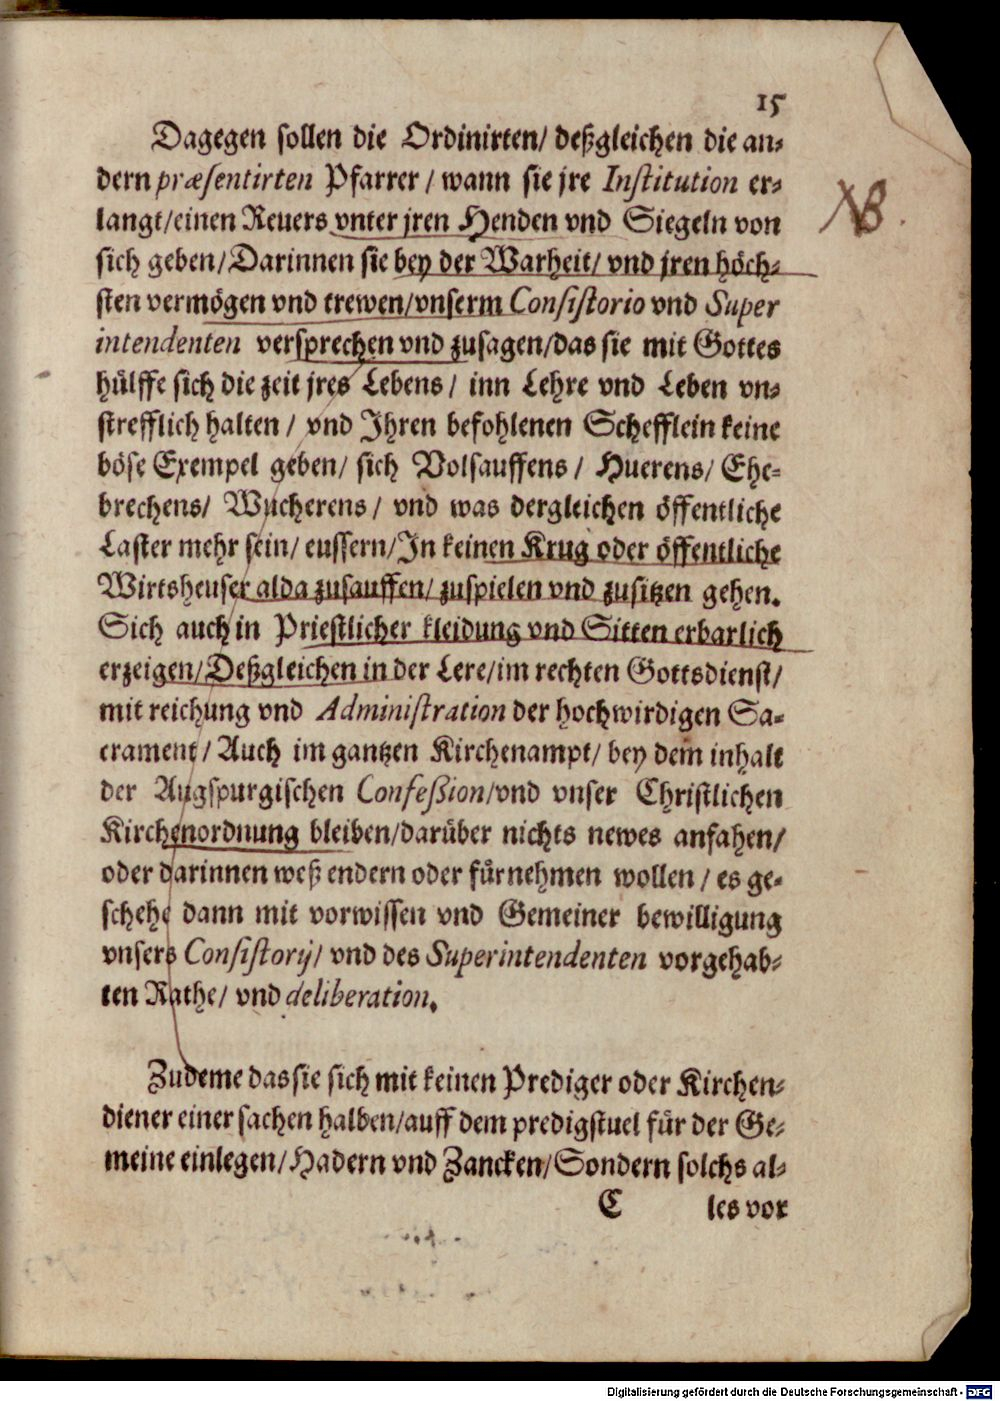 15
Dagegen sollen die Ordinirten/ deßgleichen die an-
dern præsentirten Pfarrer / wann sie jre Institution er-
langt/einen Reuers vnter jren Henden vnd Siegeln von
sich geben/Darinnen sie bey der Warheit/ vnd jren höch-
sten vermögen vnd trewen/vnserm Consistorio vnd Super
intendenten versprechen vnd zusagen/das sie mit Gottes
hülffe sich die zeit jres Lebens / inn Lehre vnd Leben vn-
strefflich halten / vnd Ihren befohlenen Schefflein keine
böse Exempel geben/ sich Volsauffens / Huerens/ Ehe-
brechens/ Wucherens / vnd was dergleichen öffentliche
Laster mehr sein/ eussern/In keinen Krug oder öffentliche
Wirtsheuser alda zusauffen/ zuspielen vnd zusitzen gehen.
Sich auch in Priestlicher kleidung vnd Sitten erbarlich
erzeigen/Deßgleichen in der Lere/im rechten Gottsdienst/
mit reichung vnd Administration der hochwirdigen Sa-
crament/ Auch im gantzen Kirchenampt/ bey dem inhalt
der Augspurgischen Confeßion/vnd vnser Christlichen
Kirchenordnung bleiben/darüber nichts newes anfahen/
oder darinnen weß endern oder fürnehmen wollen / es ge-
schehe dann mit vorwissen vnd Gemeiner bewilligung
vnsers Consistorij/ vnd des Superintendenten vorgehab-
ten Rathe/ vnd deliberation.
Zudeme das sie sich mit keinen Prediger oder Kirchen-
diener einer sachen halben/auff dem predigstuel für der Ge-
meine einlegen/Hadern vnd Zancken/Sondern solchs al-
C les vor
NB.
Digitalisierung gefördert durch die Deutsche Forschungsgemeinschaft - DFG